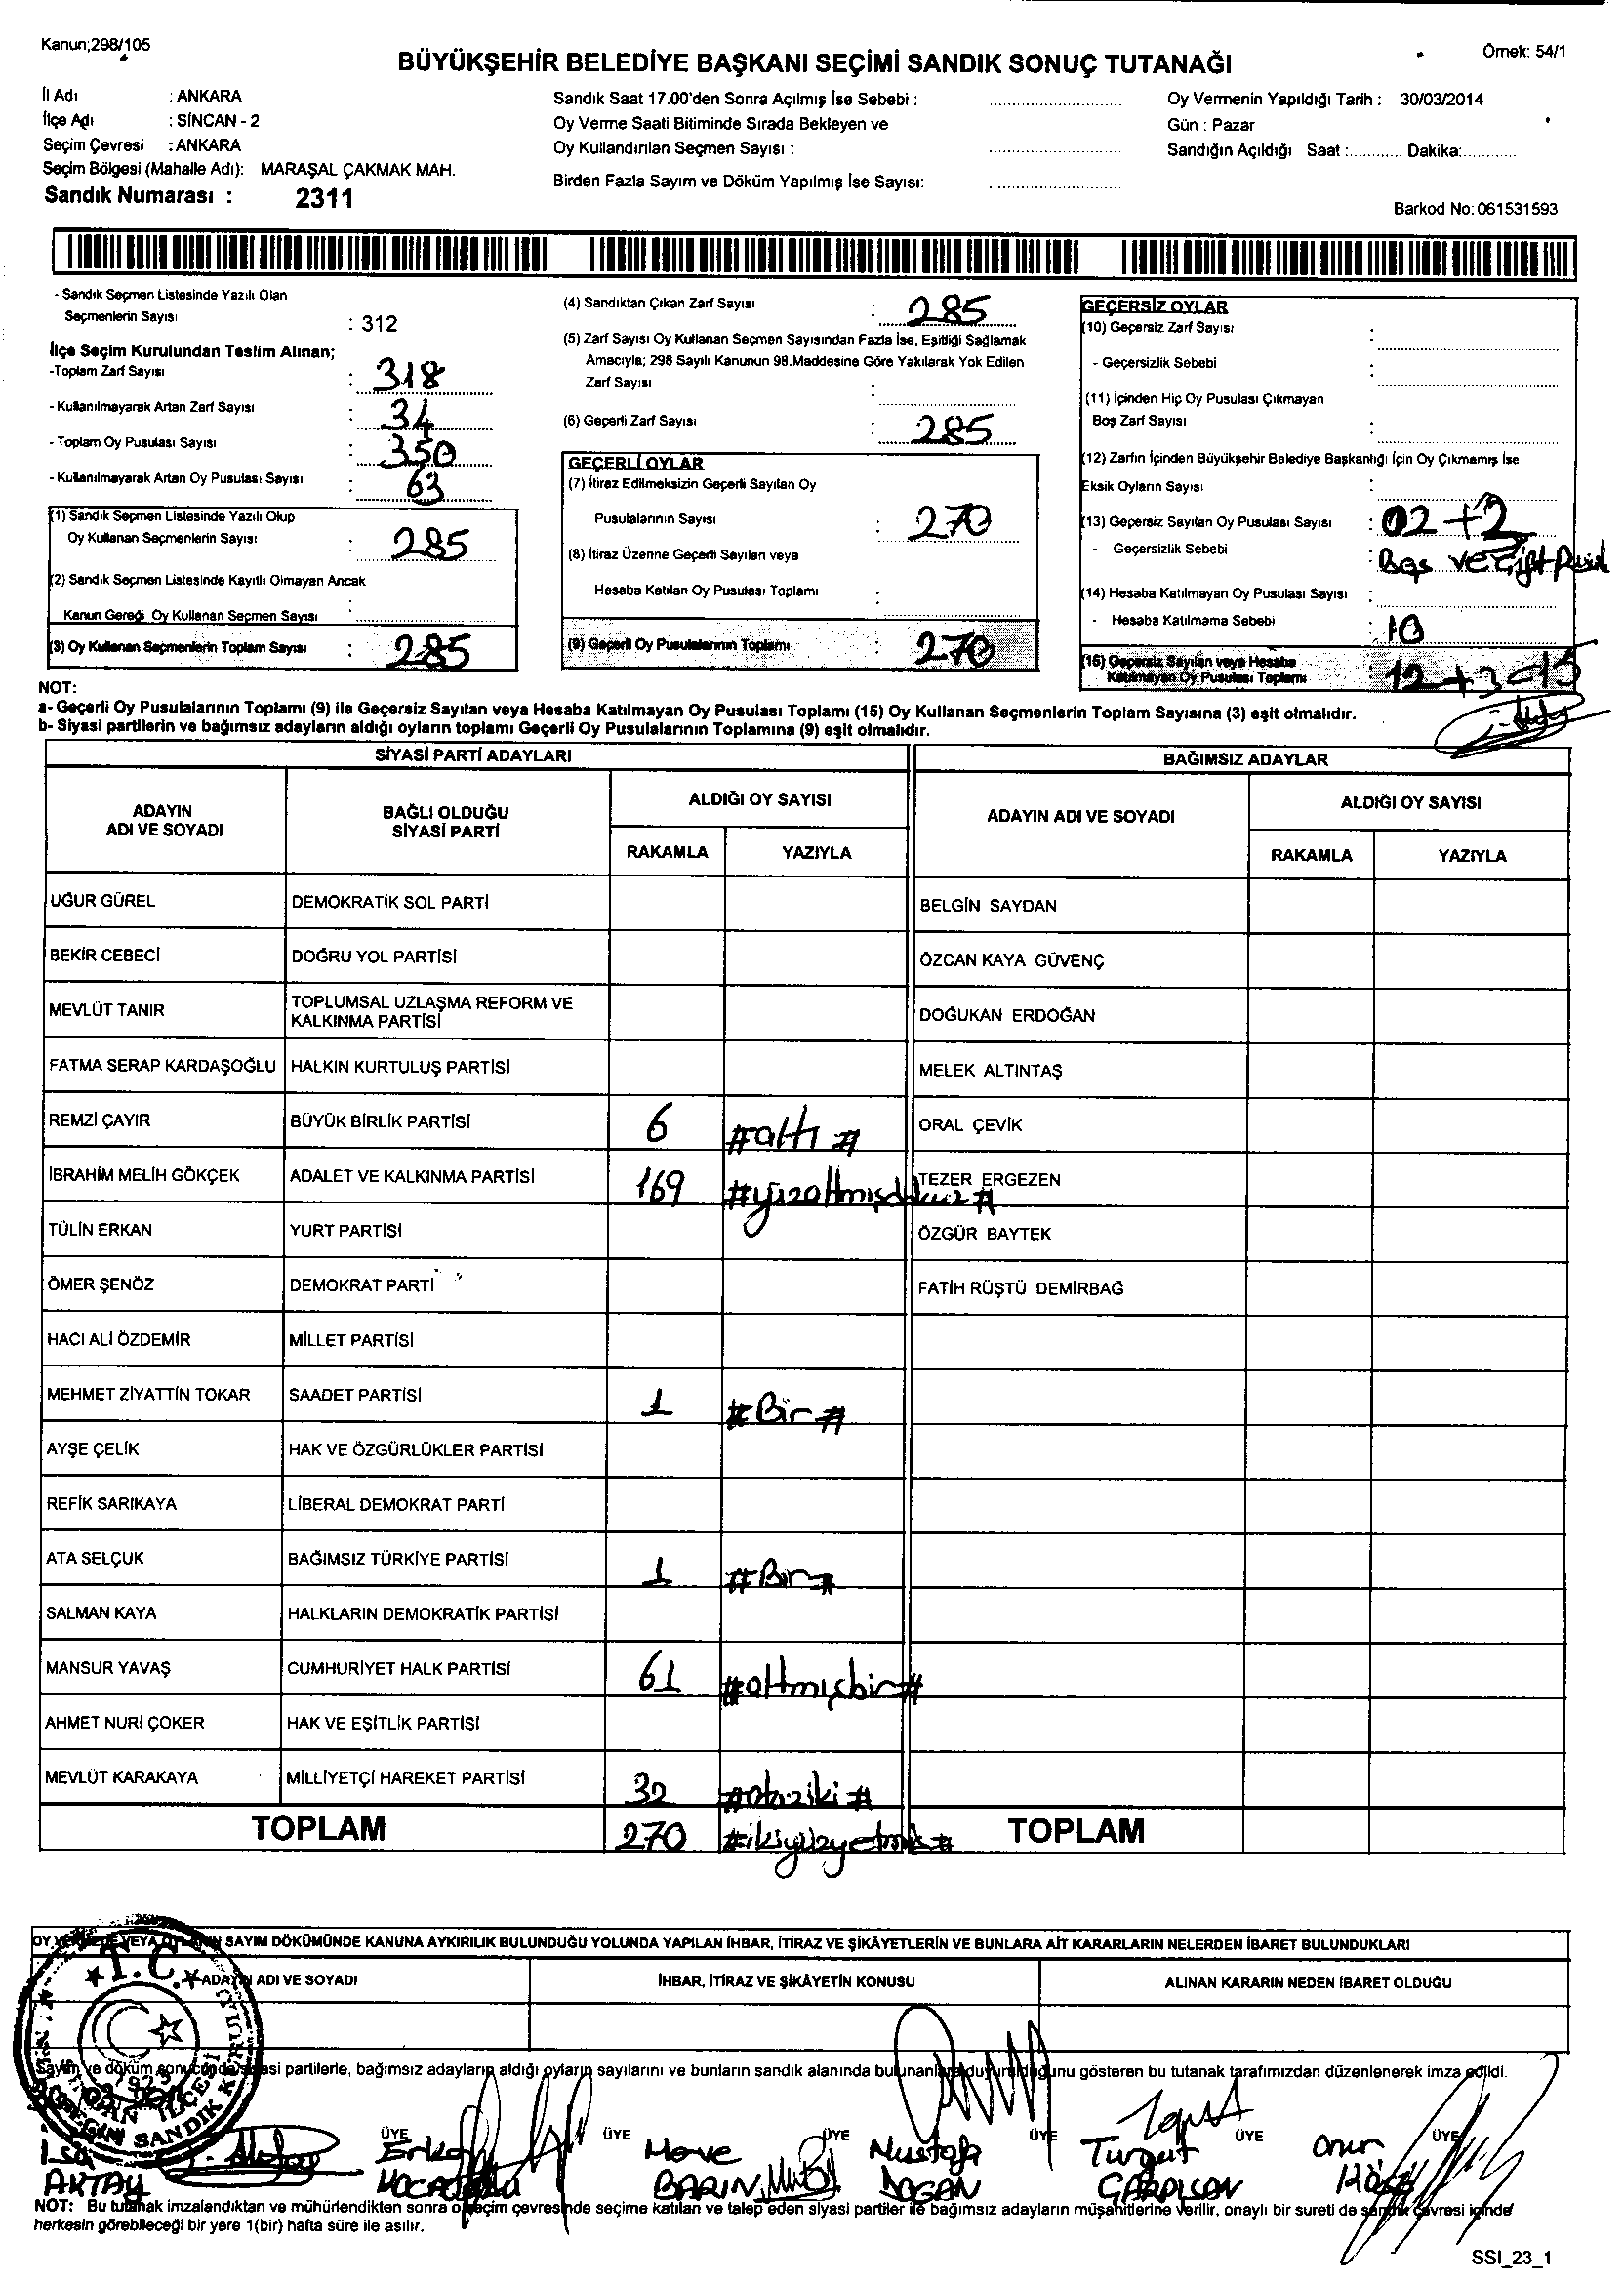 Kanun;298/105
BÜYÜKŞEHİR BELEDİYE BAŞKANI SEÇİMİ SANDIK SONUÇ TUTANAĞI
Örnek: 54/1
İl Adı : ANKARA
İlçe Adı : SİNCAN - 2
Seçim Çevresi : ANKARA
Seçim Bölgesi (Mahalle Adı): MARAŞAL ÇAKMAK MAH.
Sandık Numarası : 2311
Sandık Saat 17.00'den Sonra Açılmış İse Sebebi :
Oy Verme Saati Bitiminde Sırada Bekleyen ve
Oy Kullandırılan Seçmen Sayısı :
Birden Fazla Sayım ve Döküm Yapılmış İse Sayısı:
Oy Vermenin Yapıldığı Tarih : 30/03/2014
Gün : Pazar
Sandığın Açıldığı Saat :........... Dakika:...........
Barkod No: 061531593
- Sandık Seçmen Listesinde Yazılı Olan
Seçmenlerin Sayısı : 312
İlçe Seçim Kurulundan Teslim Alınan;
-Toplam Zarf Sayısı : 318
- Kullanılmayarak Artan Zarf Sayısı : 34
- Toplam Oy Pusulası Sayısı : 350
- Kullanılmayarak Artan Oy Pusulası Sayısı : 63
(1) Sandık Seçmen Listesinde Yazılı Olup
Oy Kullanan Seçmenlerin Sayısı : 285
(2) Sandık Seçmen Listesinde Kayıtlı Olmayan Ancak
Kanun Gereği Oy Kullanan Seçmen Sayısı :
(3) Oy Kullanan Seçmenlerin Toplam Sayısı : 285
(4) Sandıktan Çıkan Zarf Sayısı : 285
(5) Zarf Sayısı Oy Kullanan Seçmen Sayısından Fazla İse, Eşitliği Sağlamak
Amacıyla; 298 Sayılı Kanunun 98.Maddesine Göre Yakılarak Yok Edilen
Zarf Sayısı :
(6) Geçerli Zarf Sayısı : 285
GEÇERLİ OYLAR
(7) İtiraz Edilmeksizin Geçerli Sayılan Oy
Pusulalarının Sayısı : 270
(8) İtiraz Üzerine Geçerli Sayılan veya
Hesaba Katılan Oy Pusulası Toplamı :
(9) Geçerli Oy Pusulalarının Toplamı : 270
GEÇERSİZ OYLAR
(10) Geçersiz Zarf Sayısı :
- Geçersizlik Sebebi :
(11) İçinden Hiç Oy Pusulası Çıkmayan
Boş Zarf Sayısı :
(12) Zarfın İçinden Büyükşehir Belediye Başkanlığı İçin Oy Çıkmamış İse
Eksik Oyların Sayısı :
(13) Geçersiz Sayılan Oy Pusulası Sayısı : 02+2
- Geçersizlik Sebebi : Boş ve Çift
(14) Hesaba Katılmayan Oy Pusulası Sayısı :
- Hesaba Katılmama Sebebi : 10
(15) Geçersiz Sayılan veya Hesaba
Katılmayan Oy Pusulası Toplamı 12+3=15
NOT:
a- Geçerli Oy Pusulalarının Toplamı (9) ile Geçersiz Sayılan veya Hesaba Katılmayan Oy Pusulası Toplamı (15) Oy Kullanan Seçmenlerin Toplam Sayısına (3) eşit olmalıdır.
b- Siyasi partilerin ve bağımsız adayların aldığı oyların toplamı Geçerli Oy Pusulalarının Toplamına (9) eşit olmalıdır.
SİYASİ PARTİ ADAYLARI
BAĞIMSIZ ADAYLAR
ADAYIN ADI VE SOYADI
BAĞLI OLDUĞU SİYASİ PARTİ
ALDIĞI OY SAYISI
RAKAMLA YAZIYLA
ADAYIN ADI VE SOYADI
ALDIĞI OY SAYISI
RAKAMLA YAZIYLA
UĞUR GÜREL DEMOKRATİK SOL PARTİ BELGİN SAYDAN
BEKİR CEBECİ DOĞRU YOL PARTİSİ ÖZCAN KAYA GÜVENÇ
MEVLÜT TANIR TOPLUMSAL UZLAŞMA REFORM VE KALKINMA PARTİSİ DOĞUKAN ERDOĞAN
FATMA SERAP KARDAŞOĞLU HALKIN KURTULUŞ PARTİSİ MELEK ALTINTAŞ
REMZİ ÇAYIR BÜYÜK BİRLİK PARTİSİ 6 #altı# ORAL ÇEVİK
İBRAHİM MELİH GÖKÇEK ADALET VE KALKINMA PARTİSİ 169 #yüzaltmışdokuz# TEZER ERGEZEN
TÜLİN ERKAN YURT PARTİSİ ÖZGÜR BAYTEK
ÖMER ŞENÖZ DEMOKRAT PARTİ FATİH RÜŞTÜ DEMİRBAĞ
HACI ALİ ÖZDEMİR MİLLET PARTİSİ
MEHMET ZİYATTİN TOKAR SAADET PARTİSİ 1 #Bir#
AYŞE ÇELİK HAK VE ÖZGÜRLÜKLER PARTİSİ
REFİK SARIKAYA LİBERAL DEMOKRAT PARTİ
ATA SELÇUK BAĞIMSIZ TÜRKİYE PARTİSİ 1 #Bir#
SALMAN KAYA HALKLARIN DEMOKRATİK PARTİSİ
MANSUR YAVAŞ CUMHURİYET HALK PARTİSİ 61 #altmışbir#
AHMET NURİ ÇOKER HAK VE EŞİTLİK PARTİSİ
MEVLÜT KARAKAYA MİLLİYETÇİ HAREKET PARTİSİ 32 #otuziki#
TOPLAM 270 #ikiyüzyetmiş# TOPLAM
SAYIM DÖKÜMÜNDE KANUNA AYKIRILIK BULUNDUĞU YOLUNDA YAPILAN İHBAR, İTİRAZ VE ŞİKÂYETLERİN VE BUNLARA AİT KARARLARIN NELERDEN İBARET BULUNDUKLARI
T.C.
ADAYIN ADI VE SOYADI
İHBAR, İTİRAZ VE ŞİKÂYETİN KONUSU
ALINAN KARARIN NEDEN İBARET OLDUĞU
Sayım ve döküm sonucunda siyasi partilerle, bağımsız adayların aldığı oyların sayılarını ve bunların sandık alanında bulunanlara duyurulduğunu gösteren bu tutanak tarafımızdan düzenlenerek imza edildi.
ÜYE ÜYE ÜYE ÜYE ÜYE ÜYE
İsa Erkan Merve Mustafa Turgut Onur
AKTAY BARIN DOGAN
NOT: Bu tutanak imzalandıktan ve mühürlendikten sonra o seçim çevresinde seçime katılan ve talep eden siyasi partiler ile bağımsız adayların müşahitlerine verilir, onaylı bir sureti de sandık çevresi içinde
herkesin görebileceği bir yere 1(bir) hafta süre ile asılır.
SSI_23_1